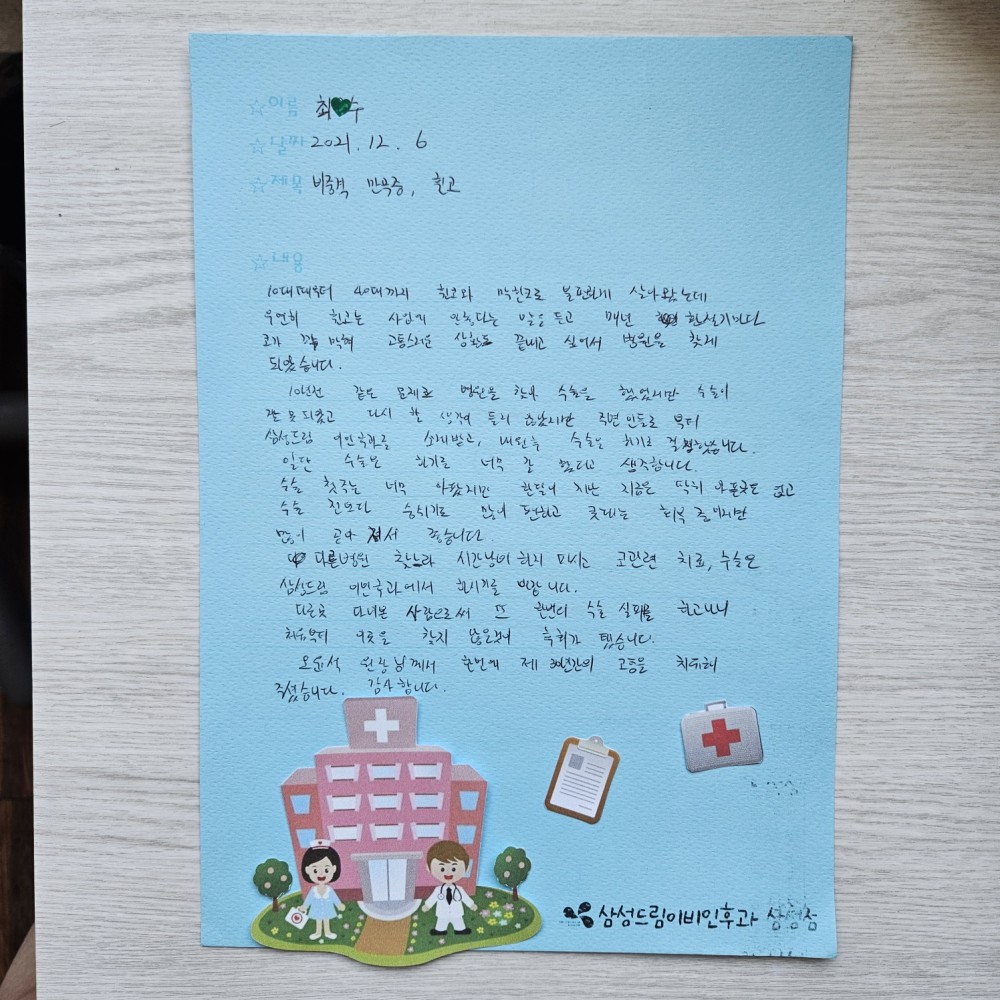 ☆이름 최♥수
☆날짜 2021. 12. 6
☆제목 비중격 만곡증, 휜코
☆내용
10대때부터 40대까지 휜코와 막힌코로 불편하게 살아왔는데
우연히 휜코는 사업에 안좋다는 말을 듣고 매년 환절기마다
코가 꽉 막혀 고통스러운 상황도 끝내고 싶어서 병원을 찾게
되었습니다.
10년전 같은 문제로 병원을 찾아 수술을 했었지만 수술이
잘 못 되었고 다시 할 생각이 들지 않았지만 주변 인들로 부터
삼성드림 이빈후과를 소개받고, 내원후 수술을 하기로 결심했습니다.
일단 수술은 하기로 너무 잘 했다고 생각합니다.
수술 첫주는 너무 아팠지만 한달이 지난 지금은 딱히 아픈곳도 없고
수술 전보다 숨쉬기도 많이 편하고 콧대는 회복 중이지만
많이 곧아 져서 좋습니다.
다른병원 찾느라 시간낭비 하지 마시고 코관련 치료, 수술은
삼성드림 이빈후과에서 하시기를 바랍니다.
다른곳 다녀본 사람으로써 또 한번의 수술 실패를 하고나니
처음부터 이곳을 찾지 않은것이 후회가 됐습니다.
오윤석 원장님께서 한번에 제 30년간의 고통을 치유해
주셨습니다. 감사합니다.
삼성드림이비인후과 삼성점